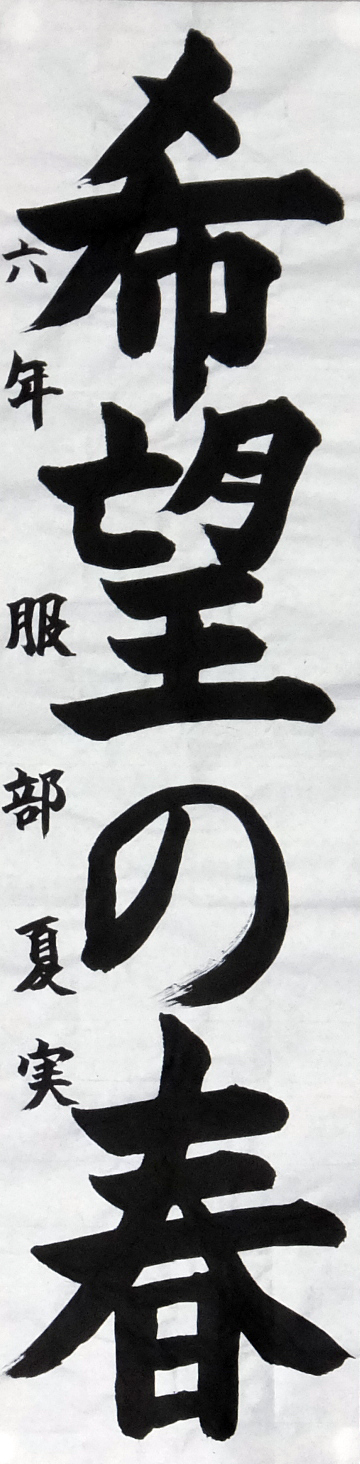 希望の春
六年 服部夏実